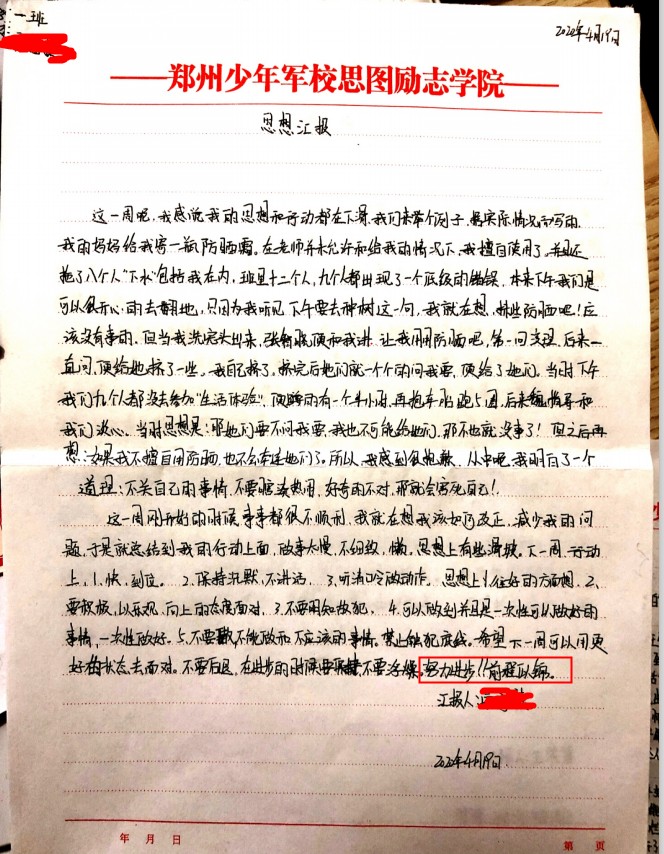 一班
2020年4月19日
郑州少年军校思图励志学院
思想汇报
这一周呢，我感觉我的思想和行动都在下滑，我们来举个例子，据实际情况而写的，
我的妈妈给我寄一瓶防晒霜。在老师并未允许和给我的情况下，我擅自使用了。并且还
拖了八个人"下水"包括我在内，班里十二个人，九个人都出现了一个低级的错误，本来下午我们是
可以很开心的去翻地，只因为我听见下午要去种树这一句，我就在想，挤些防晒吧！应
该没有事的。但当我洗完头出来，便和我讲让我用用防晒吧，第一回
直问，便给她挤了一些。我自己挤了。挤完后她们就一个个的问我要，便给了她们。当时下午
我们九个人都没去参加"生活体验"，便蹲的有一个半小时，再抱车胎跑5圈，后来和
我们谈心。当时思想是：那她们要不问我要，我也不可能给她们，那不也就没事了！但之后再
想：如果我不擅自用防晒，也不会牵连她们了。所以，我感到很抱歉，从中呢，我明白了一个
道理：不关自己的事情，不要瞎凑热闹，好奇的不对，那就会害死自己！
这一周刚开始的时候事事都很不顺利，我就在想我该如何改正，减少我的问
题，于是就总结到我的行动上面，做事太慢，不细致，懒。思想上有些滑坡。下一周行动
上，1.快，到位。2.保持沉默，不讲话。3.听清口令做动作。思想上1.往好的方面想，2.
要积极，以乐观，向上的态度面对。3.不要明知故犯，4.可以做到并且是一次性可以做好的
事情，一次性做好。5.不要做不能做和不应该的事情。禁止触犯底线。希望下一周可以用更
好的状态去面对。不要后退，在进步的时候要不要浮躁。努力进步！！前程似锦。
汇报人：
2020年4月19日
年 月 日
第 页